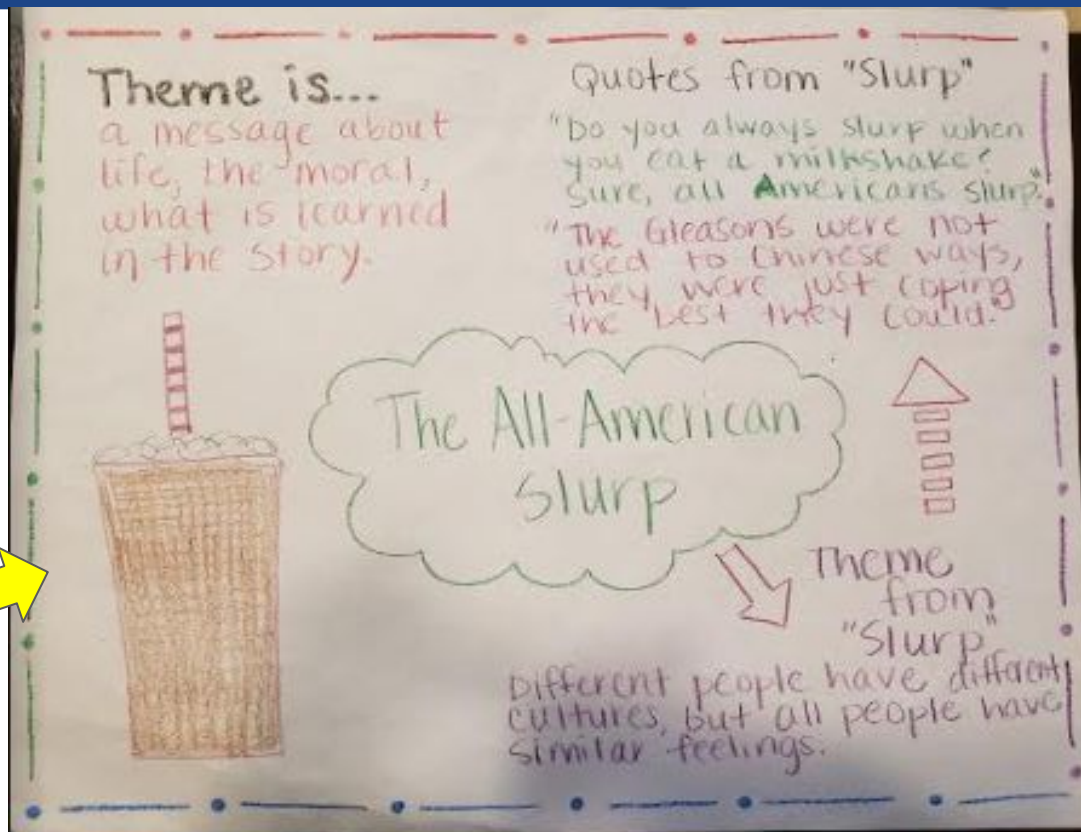 Theme is...
a message about
life, the moral,
what is learned
in the story.
Quotes from "Slurp"
"Do you always slurp when
you eat a milkshake?
Sure, all Americans slurp."
"The Gleasons were not
used to Chinese ways,
they were just coping
the best they could."
The All-American
Slurp
Theme
from
"Slurp"
Different people have different
cultures, but all people have
similar feelings.